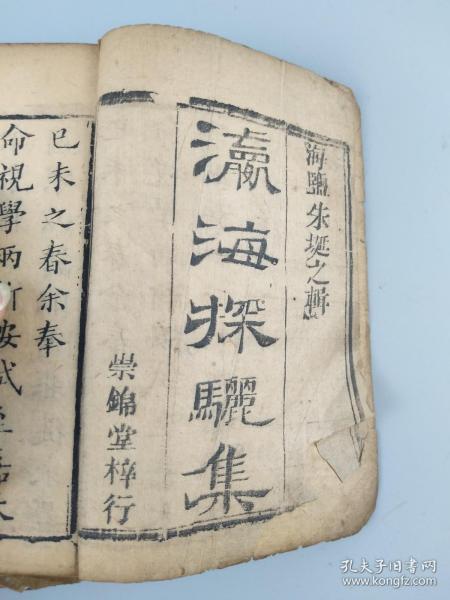 海鹽朱埏之輯
瀛海探驪集
崇錦堂梓行
已未之春余奉
命視學兩浙按試至嘉禾
孔夫子旧书网
www.kongfz.com